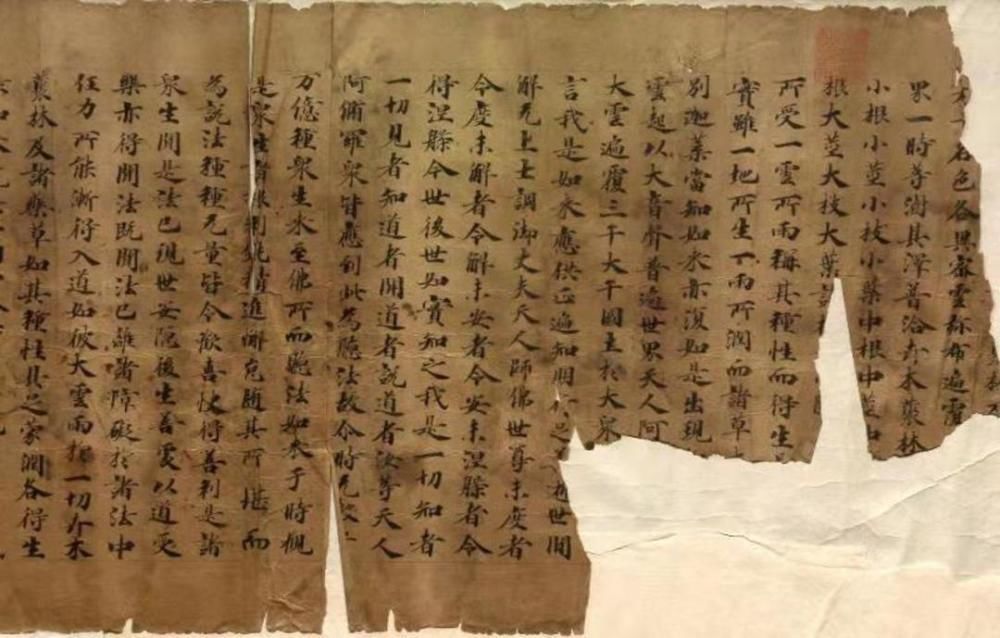 名色各異密雲弥布遍覆
界一時等澍其澤普洽卉木藂林
小根小莖小枝小葉中根中莖中
根大莖大枝大葉
所受一雲所雨稱其種性而得生
實雖一地所生一雨所潤而諸草
別迦葉當知如来亦復如是出現
雲起以大音聲普遍世界天人阿
大雲遍覆三千大千國土於大衆
言我是如来應供正遍知明行足逝世間
解无上士調御丈夫天人師佛世尊未度者
令度未解者令解未安者令安未涅槃者令
得涅槃今世後世如實知之我是一切知者
一切見者知道者開道者說道者汝等天人
阿脩羅衆皆應到此為聽法故尒時无數
万億種衆生来至佛所而聽法如来于時觀
是衆生諸根利鈍精進懈怠随其所堪而
為說法種種无量皆令歡喜快得善利是諸
衆生聞是法已現世安隱後生善處以道受
樂亦得聞法既聞法已離諸障礙於諸法中
任力所能漸得入道如彼大雲雨於一切卉木
藂林及諸藥草如其種性具足蒙潤各得生